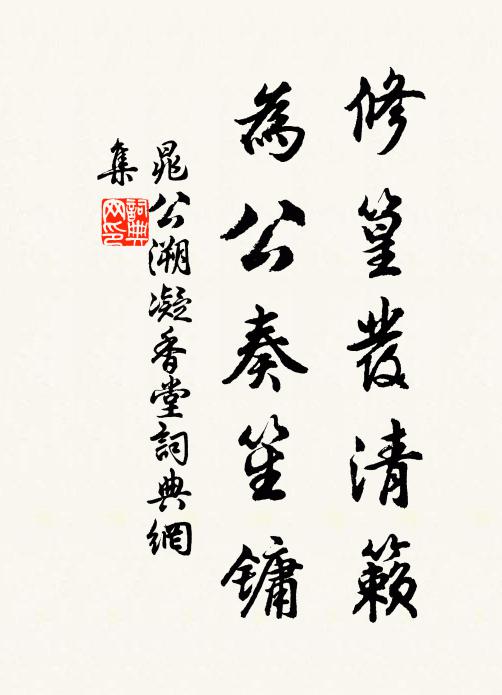 修篁發清籟
為公奏笙鏞
晁公溯凝香堂詞典網
集
詞典
网印